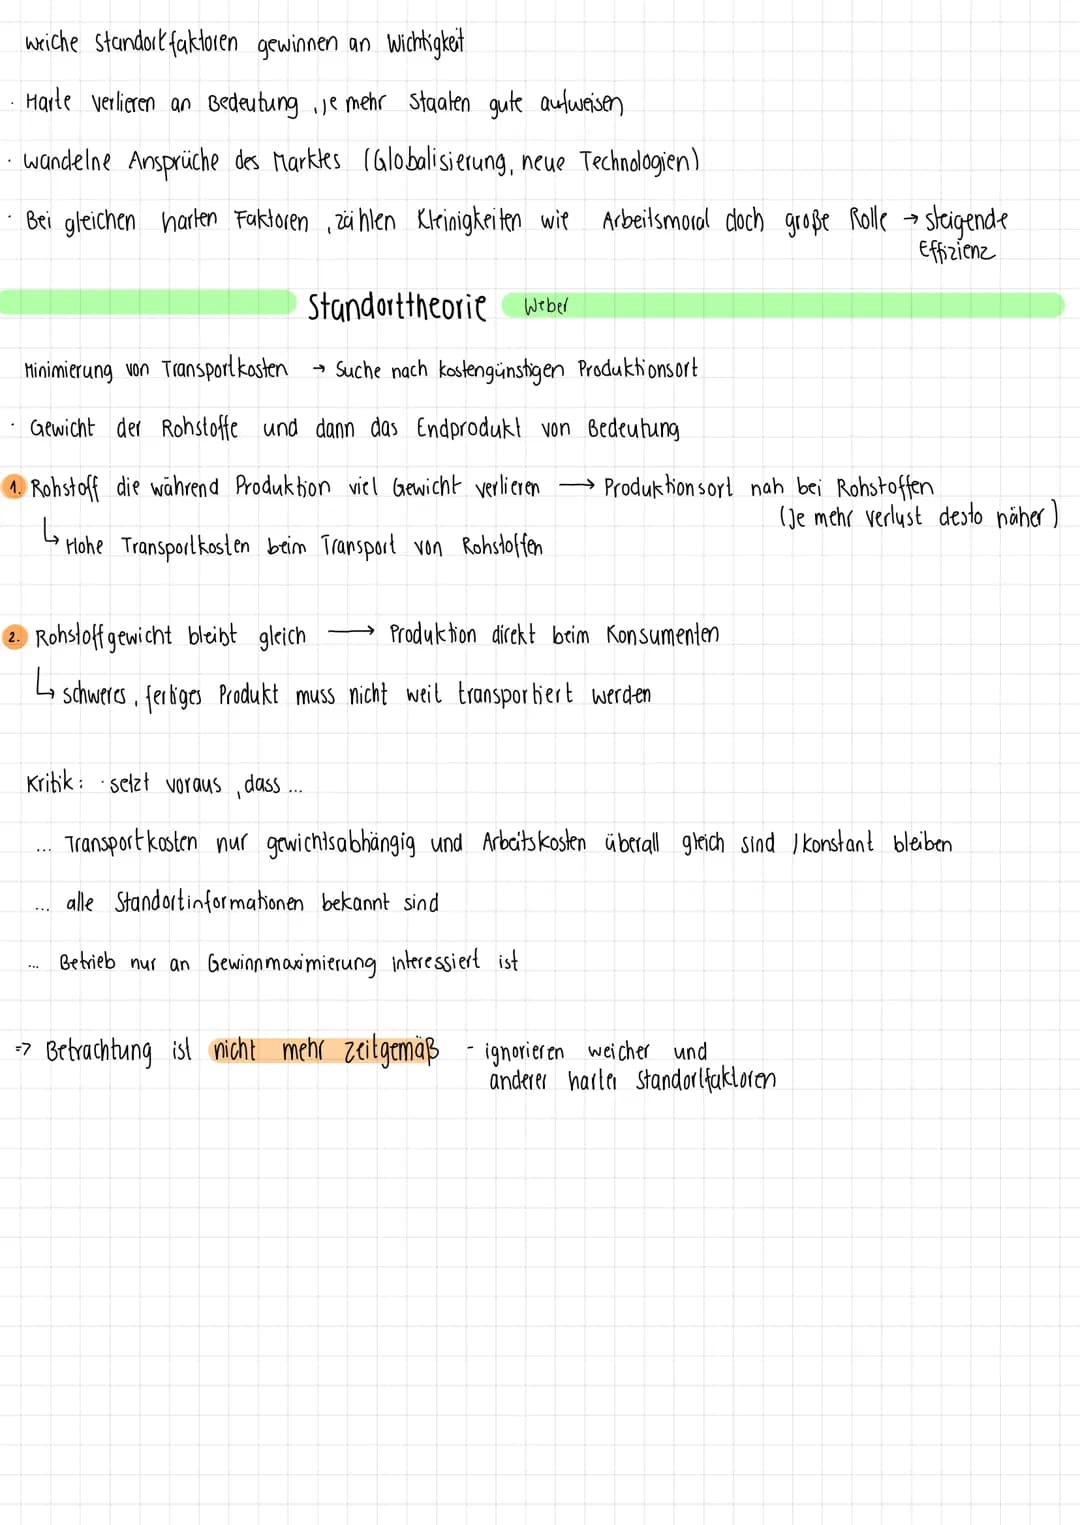 weiche Standortfaktoren gewinnen an Wichtigkeit
· Harte verlieren an Bedeutung, je mehr Staaten gute aufweisen
· wandelne Ansprüche des Marktes (Globalisierung, neue Technologien)
· Bei gleichen harten Faktoren, zählen Kleinigkeiten wie Arbeitsmoral doch große Rolle → steigende
Effizienz
Standorttheorie Weber
Minimierung von Transportkosten → Suche nach kostengünstigen Produktionsort
· Gewicht der Rohstoffe und dann das Endprodukt von Bedeutung
1. Rohstoff die während Produktion viel Gewicht verlieren → Produktionsort nah bei Rohstoffen
(Je mehr verlust desto näher)
↳ Hohe Transportkosten beim Transport von Rohstoffen
2. Rohstoffgewicht bleibt gleich → Produktion direkt beim Konsumenten
↳ schweres, fertiges Produkt muss nicht weit transportiert werden
Kritik: · setzt voraus, dass ...
... Transportkosten nur gewichtsabhängig und Arbeitskosten überall gleich sind / konstant bleiben
... alle Standortinformationen bekannt sind
... Betrieb nur an Gewinnmaximierung interessiert ist
=> Betrachtung ist nicht mehr zeitgemäß - ignorieren weicher und
anderer harter Standortfaktoren